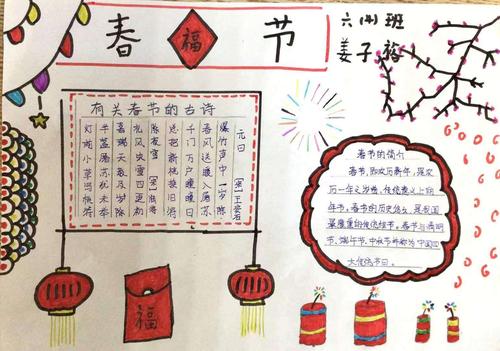 春 福 节
六(四)班
姜子
有关春节的古诗
元日
[宋]王安石
爆竹声中一岁除
春风送暖入屠苏
千门万户曈曈日
总把新桃换旧符
除夜雪
[宋]陆游
北风吹雪四更初
嘉瑞天教及岁除
半盏屠苏犹未举
灯前小草写桃符
春节的简介
春节,即农历新年,是农
历一年之岁首,传统意义上的
年节。春节的历史悠久,是我国
最隆重的传统佳节。春节与清明
节、端午节、中秋节并称为中国四
大传统节日。
福